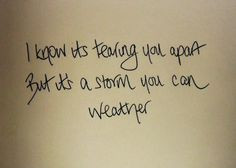 I know its tearing you apart
But it's a storm you can
weather